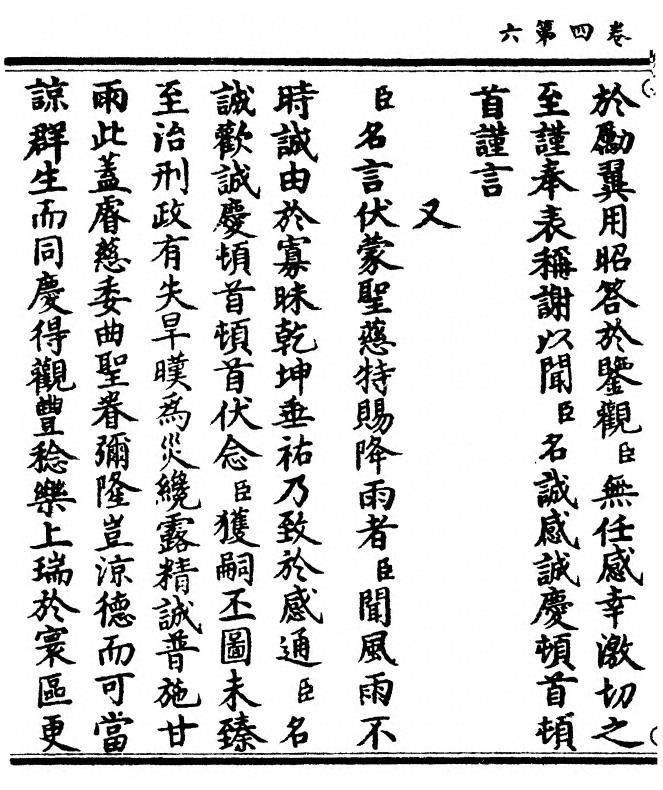 卷四第六
於勵翼用昭答於鑒觀臣無任感幸激切之
至謹奉表稱謝以聞臣名誠感誠慶頓首頓
首謹言
又
臣名言伏蒙聖慈特賜降雨者臣聞風雨不
時誠由於寡昧乾坤垂祐乃致於感通臣名
誠歡誠慶頓首頓首伏念臣獲嗣丕圖未臻
至治刑政有失旱暵為災纔露精誠普施甘
雨此蓋睿慈委曲聖眷彌隆豈涼德而可當
諒群生而同慶得觀豐稔樂上瑞於寰區更